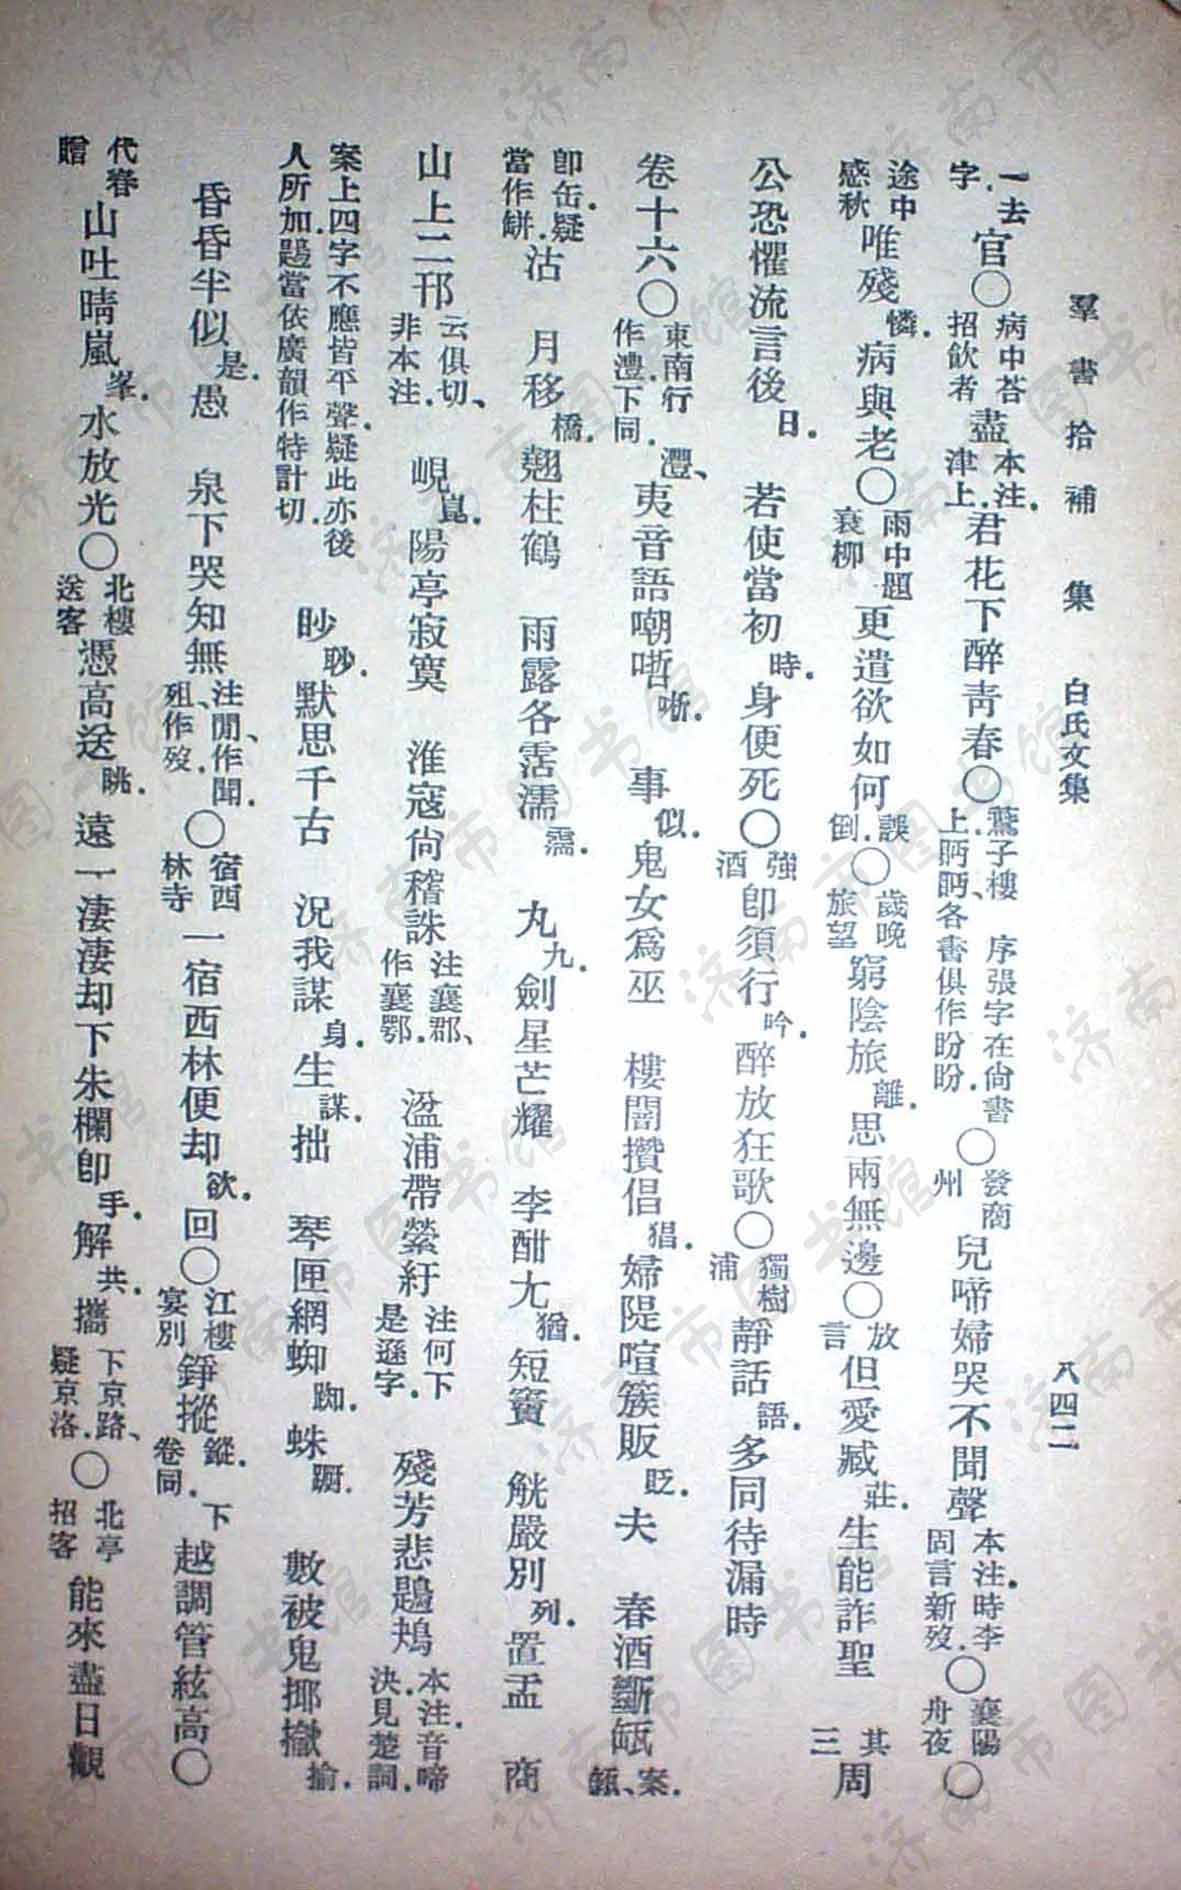 羣書拾補 集 白氏文集 八四二
一去字.官〇病中荅招飲者盡本注.津上.君花下醉靑春〇鷰子樓 序張字在尙書上.眄眄、各書俱作盼盼.〇發商州兒啼婦哭不聞聲本注.時李固言新歿.〇襄陽舟夜〇
途中感秋唯殘憐.病與老〇雨中題衰柳更遣欲如何誤倒.〇歲晚旅望窮陰旅離.思兩無邊〇放言但愛臧莊.生能詐聖 其三周
公恐懼流言後日. 若使當初時.身便死〇強酒卽須行吟.醉放狂歌〇獨樹浦靜話語.多同待漏時
卷十六〇東南行 灃、作澧.下同.夷音語嘲唽哳. 事似.鬼女爲巫 樓闇攢倡猖.婦隄喧簇販貶.夫 春酒斷瓻案.瓻、
卽缶.疑當作缾.沽 月移橋.翹柱鶴 雨露各霑濡霈. 丸九.劍星芒耀 李酣尢猶.短竇 觥嚴別列.置盂 商
山上二邗云俱切、非本注. 峴崑.陽亭寂寞 淮寇尙稽誅注襄郡、作襄鄂. 湓浦帶縈紆注何下是遜字. 殘芳悲鶗鴂本注.音啼決.見楚詞.
案上四字不應皆平聲.疑此亦後人所加.鶗當依廣韻作特計切. 眇.默思千古 況我謀身.生謀.拙 琴匣網蜘踟.蛛躕. 數被鬼揶擨揄.
昏昏半似是.愚 泉下哭知無注閒、作聞.殂、作歿.〇宿西林寺一宿西林便却欲.回〇江樓宴別錚摐鏦.下卷同.越調管絃高〇
代春贈山吐晴嵐峯.水放光〇北樓送客憑高送眺.遠一淒淒却下朱欄卽手.解共.攜下京路、疑京洛.〇北亭招客能來盡日觀